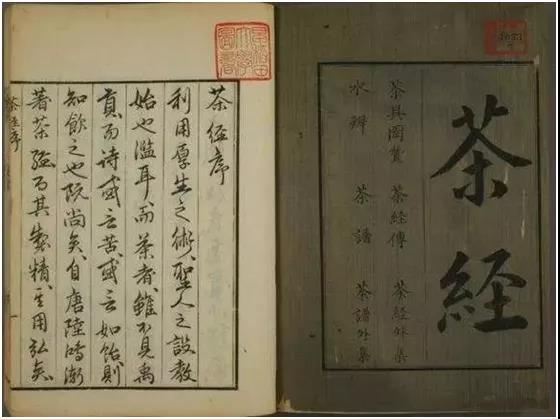 茶経
茶具圖賛 茶経傳 茶経外集
水辨 茶譜 茶譜外集
茶経序
利用厚生之術、聖人之設教
始也濫耳、而茶者、雖不見禹
貢、而诗或云苦、或云如飴、則
知飲之也既尚矣、自唐陸鴻漸
著茶経而其製精、其用弘矣、
茶経序